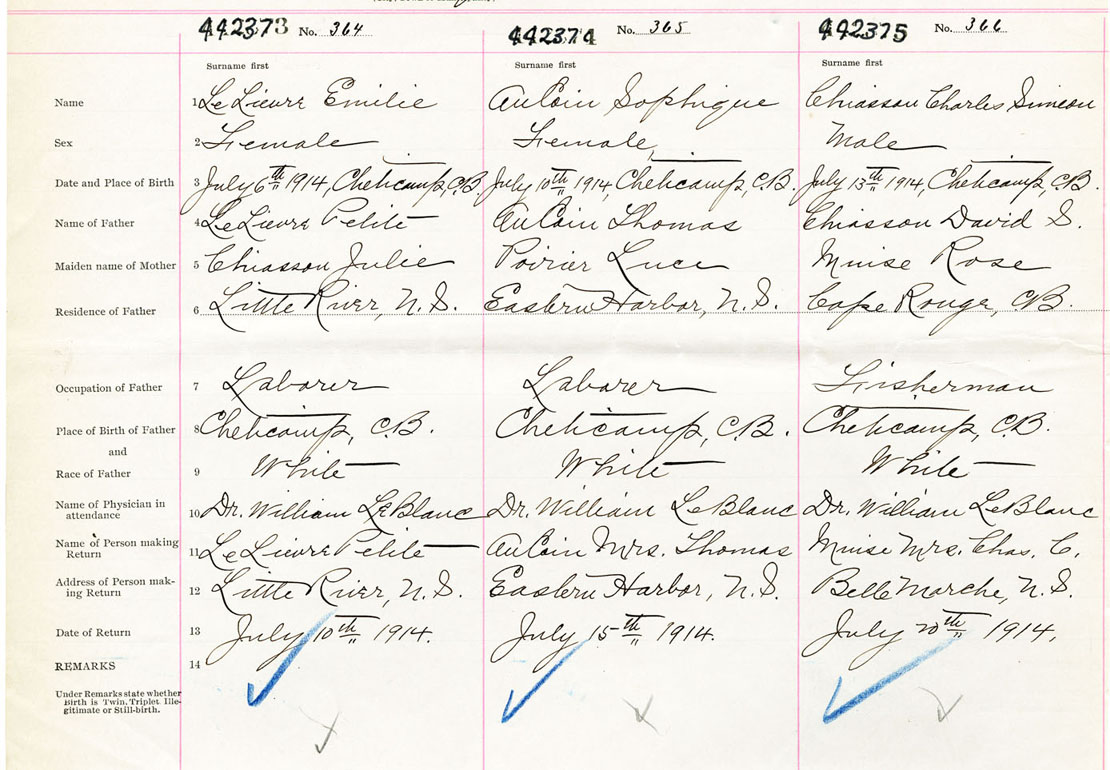 442373 No. 364 442374 No. 365 442375 No. 366
Surname first Surname first Surname first
Name 1 LeLievre Emilie AuCoin Sophique Chiasson Charles Simeon
Sex 2 Female Female Male
Date and Place of Birth 3 July 6th 1914, Cheticamp, C.B. July 10th 1914, Cheticamp, C.B. July 13th 1914, Cheticamp, C.B.
Name of Father 4 LeLievre Petite AuCoin Thomas Chiasson David S.
Maiden name of Mother 5 Chiasson Julie Poirier Luce Muise Rose
Residence of Father 6 Little River, N.S. Eastern Harbor, N.S. Cape Rouge, C.B.
Occupation of Father 7 Laborer Laborer Fisherman
Place of Birth of Father 8 Cheticamp, C.B. Cheticamp, C.B. Cheticamp, C.B.
and
Race of Father 9 White White White
Name of Physician in
attendance 10 Dr. William LeBlanc Dr. William LeBlanc Dr. William LeBlanc
Name of Person making
Return 11 LeLievre Petite AuCoin Mrs. Thomas Muise Mrs. Chas. C.
Address of Person mak-
ing Return 12 Little River, N.S. Eastern Harbor, N.S. Belle Marche, N.S.
Date of Return 13 July 10th 1914. July 15th 1914. July 20th 1914.
REMARKS 14
Under Remarks state whether
Birth is Twin, Triplet, Ille-
gitimate or Still-birth.